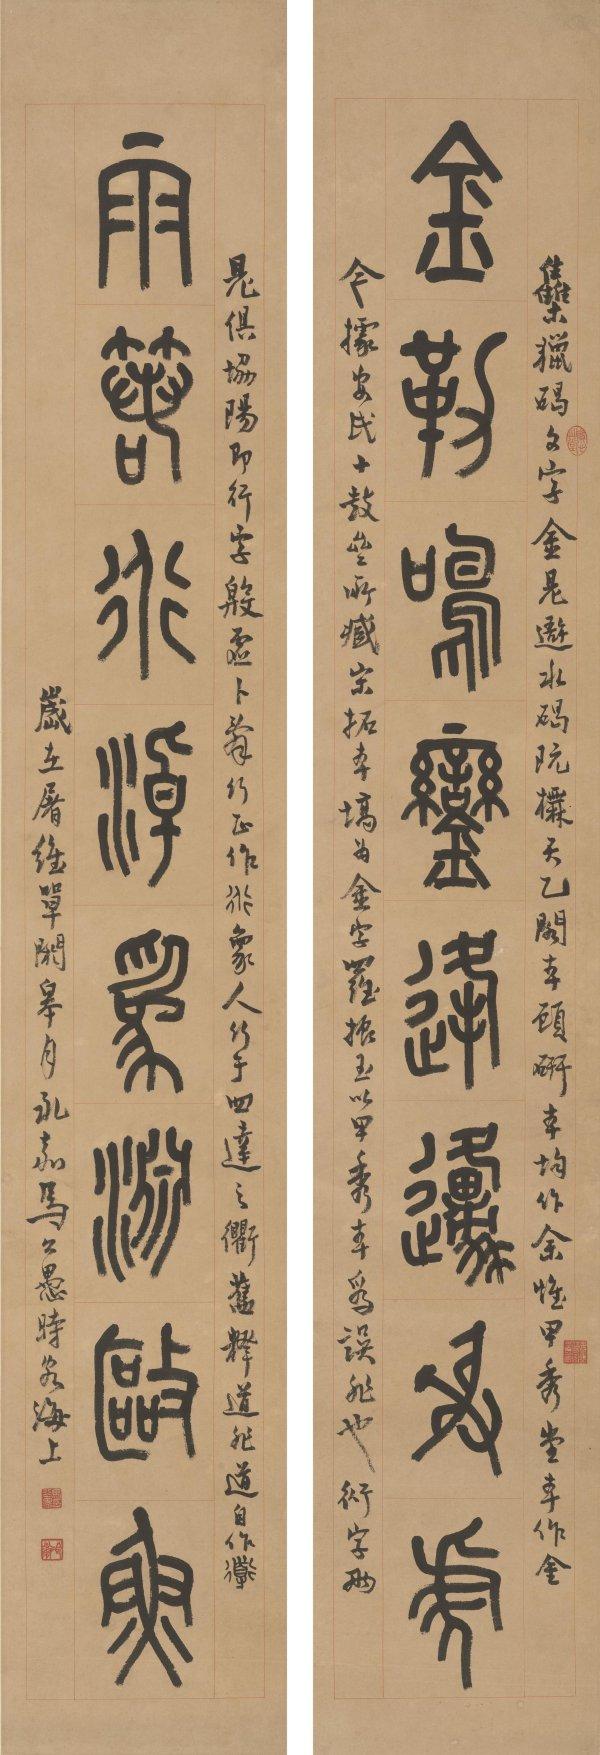 集獵碣文字金是避水碣阮橅天乙閣本顧研本均作余惟甲秀堂本作金
金勒鳴鑾邍虎
今據安氏十鼓齋所藏宋拓本塙為金字羅振玉以甲秀本為誤非也衍字兩
見俱協陽即行字殷虛卜辭行正作行象人行于四達之衢舊釋道非道自作導
雨箬行淖為淵敺魚
歲在屠維單閼皋月永嘉馬公愚時客海上